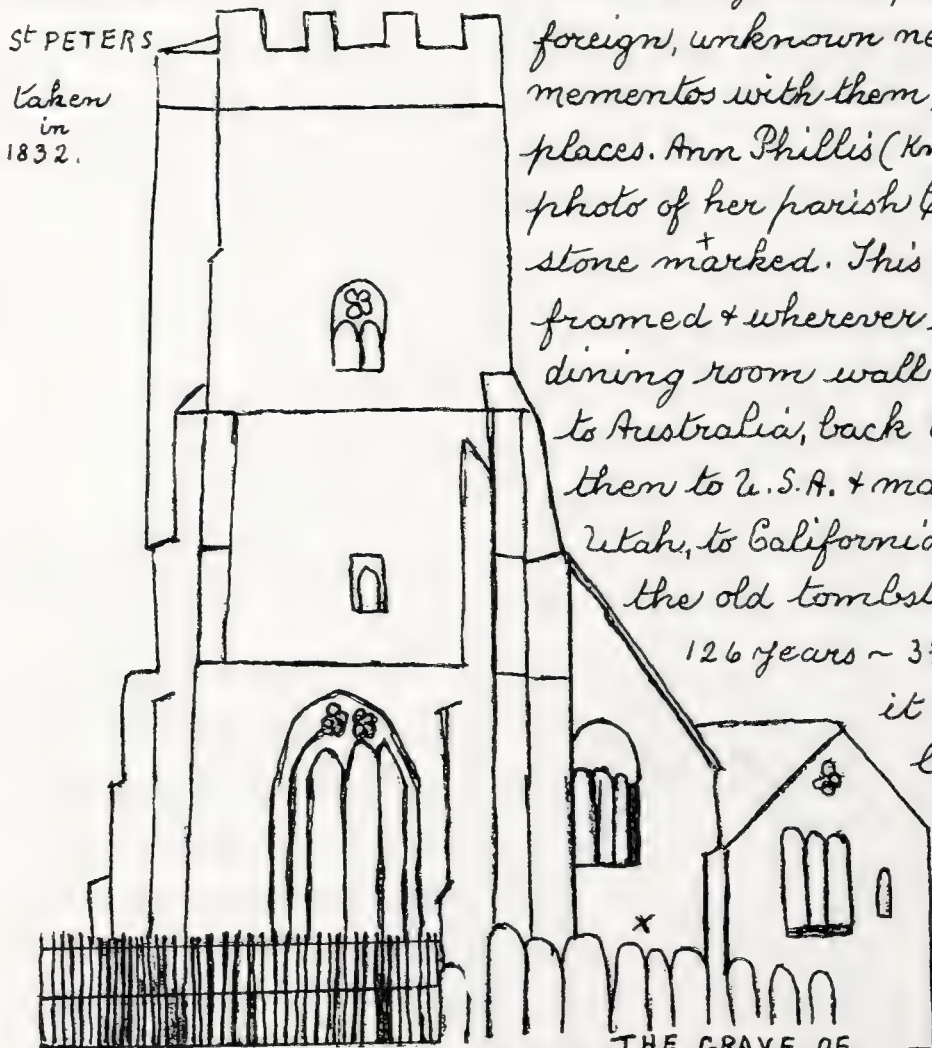 St PETERS
taken
in
1832.
foreign, unknown
mementos with them
places. Ann Phillis
photo of her parish
stone marked. This
framed & wherever
dining room wall
to Australia, back
then to U.S.A. &
Utah, to California
the old
126 years ~
it
x
THE GRAVE OF